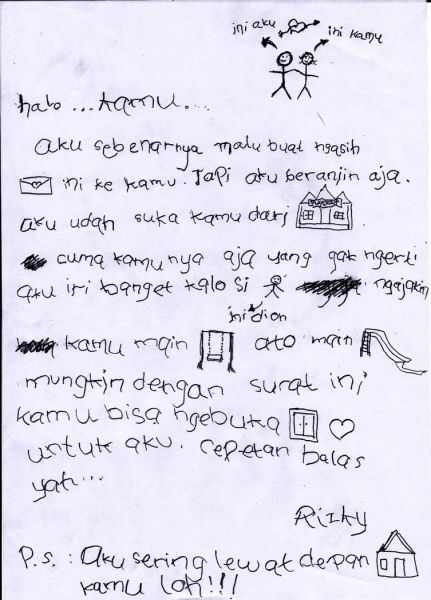 ini aku ini kamu
halo ... kamu...
aku sebenarnya malu buat ngasih
ini ke kamu. Tapi aku beranjin aja.
aku udah suka kamu dari
cuma kamunya aja yang gak ngerti
aku iri banget kalo si ngajakin
ini dion
kamu main ato main
mungkin dengan surat ini
kamu bisa ngebuka
untuk aku. cepetan balas
yah...
Rizky
P.s. : Aku sering lewat depan
kamu loh!!!